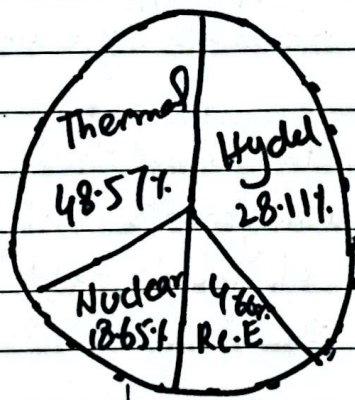 Thermal
48.57%
Hydel
28.11%
Nuclear
18.65%
4.66%
Re.E